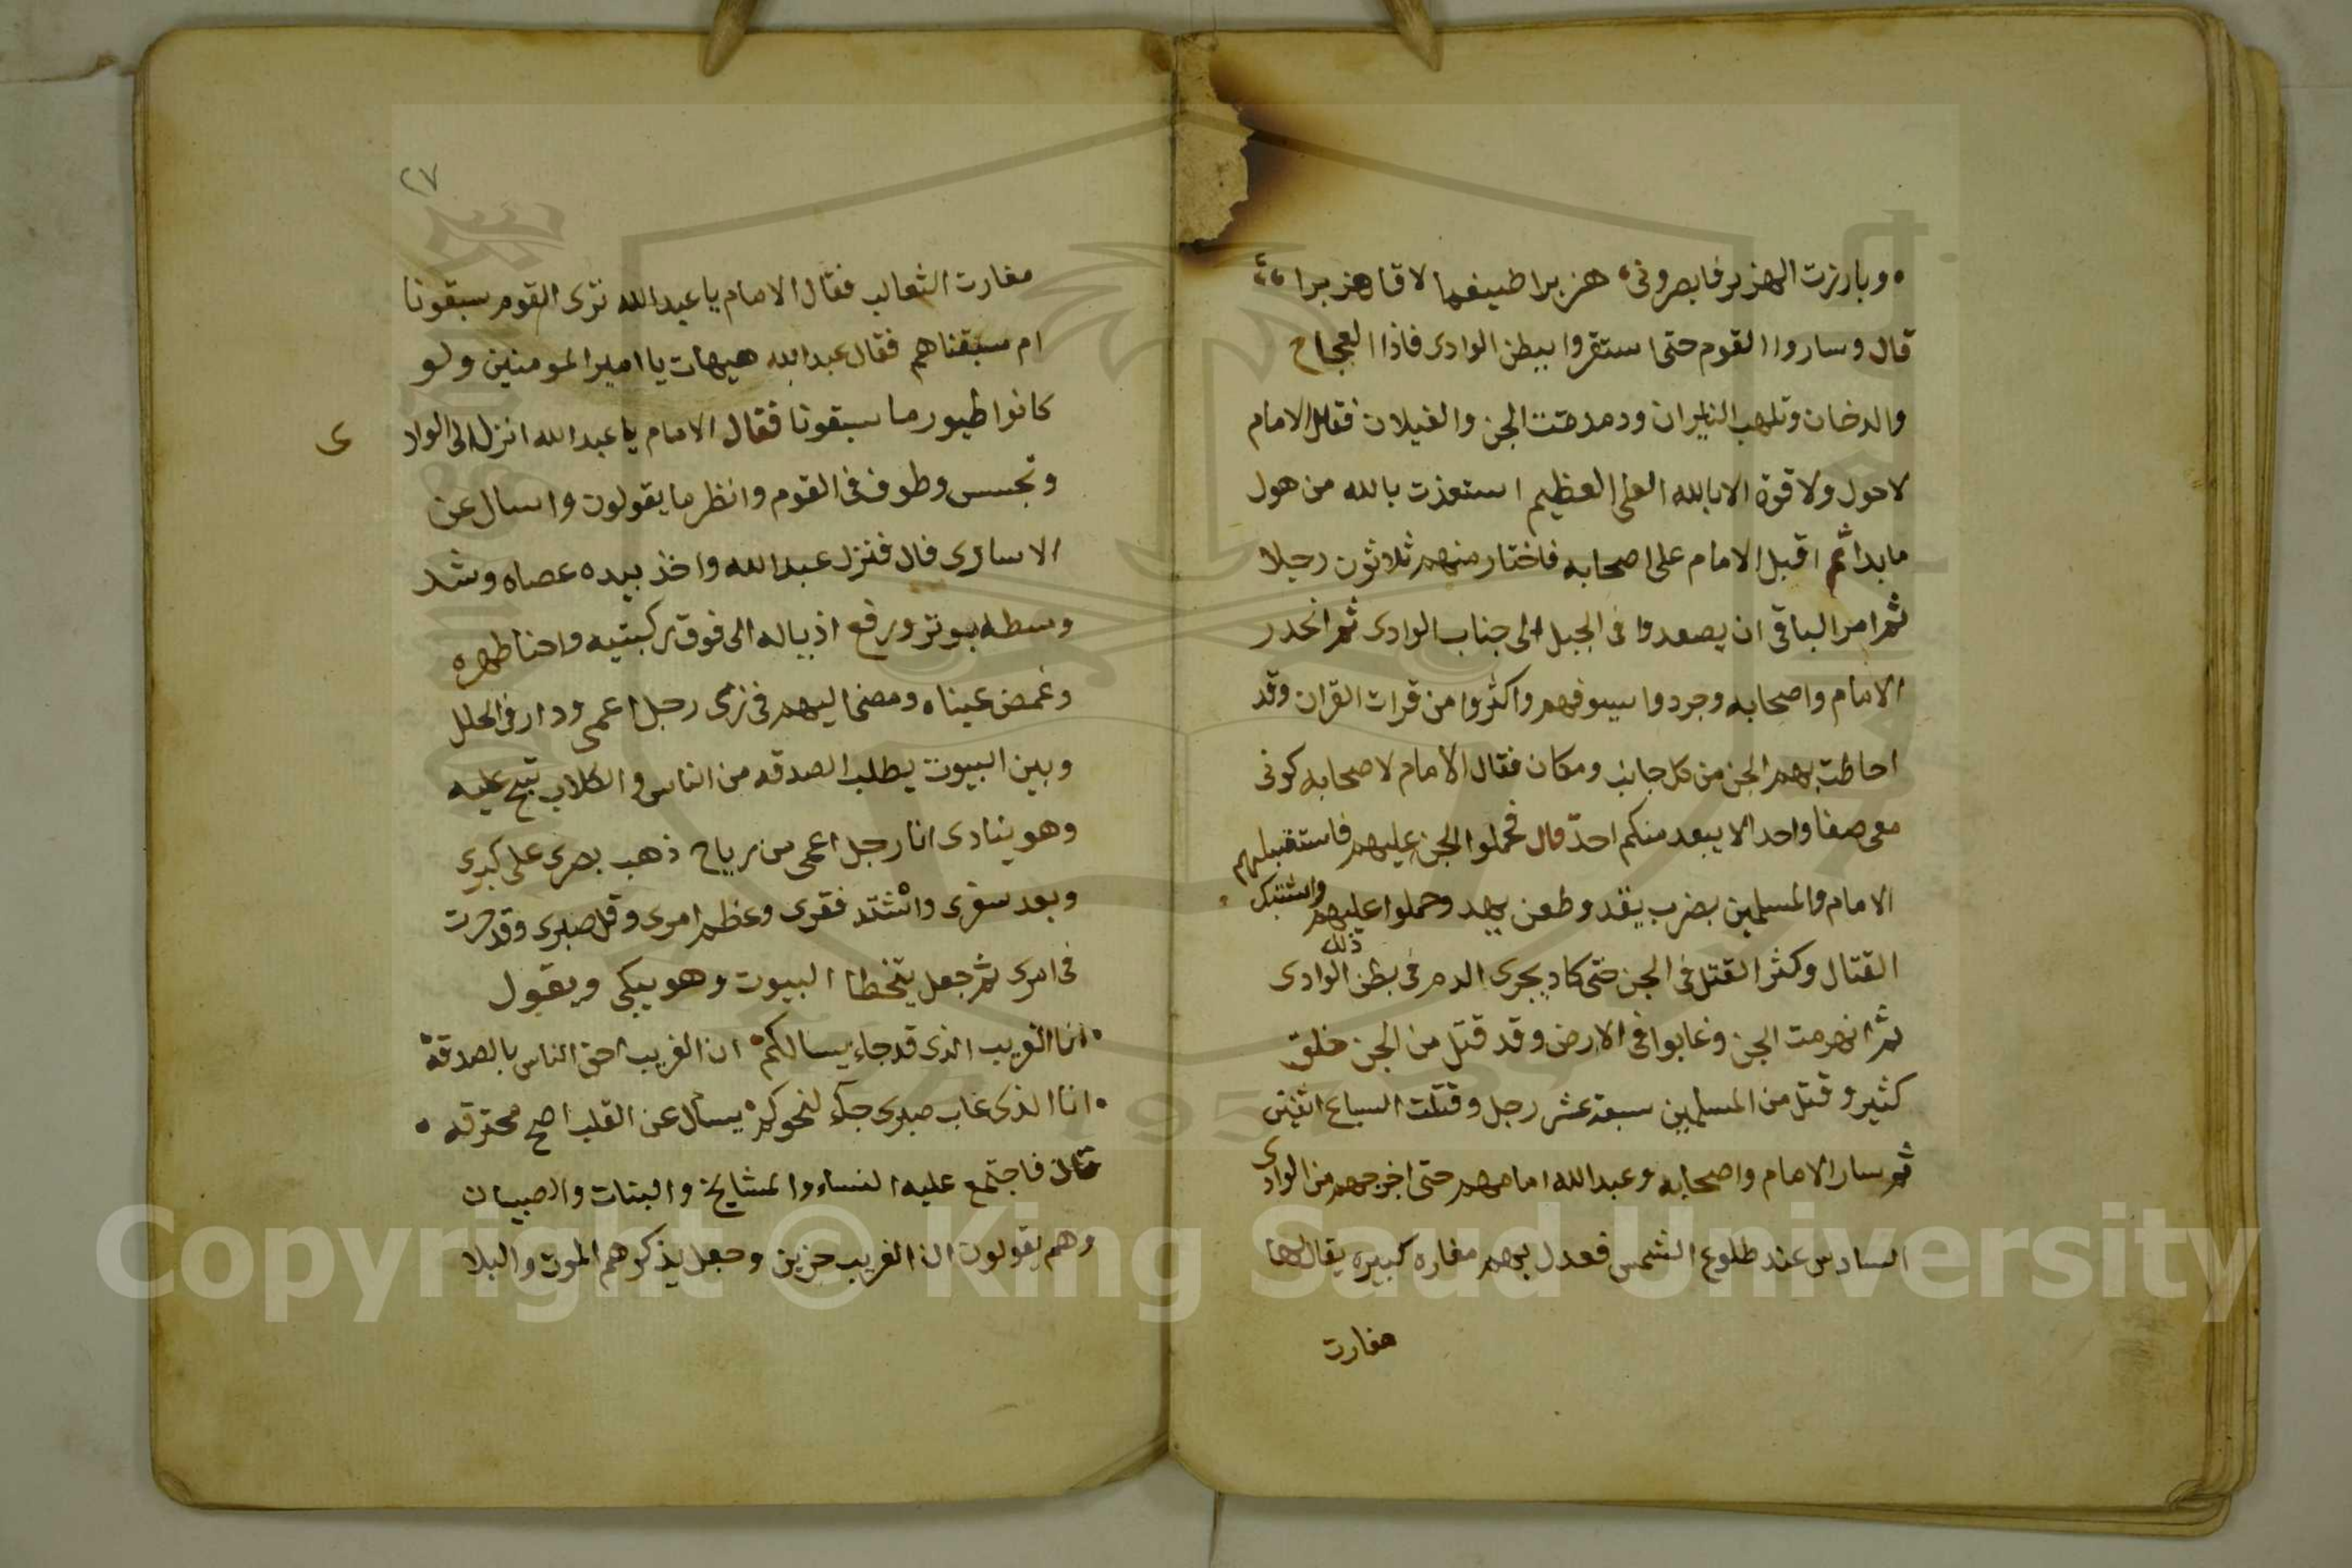 وبارزت الهزبر فابصروني هزبرا ضيغما لاقا هزبرا
قال وساروا القوم حتى استقروا ببطن الوادى فاذا العجاج
والدخان وتلهب النيران ودمدمت الجن والغيلان فقال الامام
لا حول ولا قوة الا بالله العلى العظيم استعذت بالله من هول
ما بدا ثم اقبل الامام على اصحابه فاختار منهم ثلاثون رجلا
ثم امر الباقي ان يصعدوا فى الجبل الى جناب الوادى ثم انحدر
الامام واصحابه وجردوا سيوفهم واكثروا من قرات القران وقد
احاطت بهم الجن من كل جانب ومكان فقال الامام لاصحابه كونى
معى صفا واحدا لا يبعد منكم احد قال فحملوا الجن عليهم فاستقبلهم
الامام والمسلمين بضرب يقد وطعن يهد وحملوا عليهم واشتبك
القتال وكثر القتل فى الجن حتى كاد يجرى الدم فى بطن ذلك الوادى
ثم انهزمت الجن وغابوا فى الارض وقد قتل من الجن خلق
كثير وقتل من المسلمين سبعة عشر رجل وقتلت السباع اثنين
ثم سار الامام واصحابه وعبد الله امامهم حتى اخرجهم من الوادى
السادس عند طلوع الشمس فعدل بهم مغاره كبيره يقال لها
مغارت
٢٧
مغارت الثعالب فقال الامام يا عبد الله ترى القوم سبقونا
ام سبقناهم فقال عبد الله هيهات يا امير المومنين ولو
كانوا طيور ما سبقونا فقال الامام يا عبد الله انزل الى الوادى
وتجسس وطوف فى القوم وانظر ما يقولون واسال عن
الاسارى قال فنزل عبد الله واخذ بيده عصاه وشد
وسطه بوتر ورفع اذياله الى فوق ركبتيه واحنا ظهره
وغمض عيناه ومضى اليهم فى زى رجل اعمى ودار فى الحلل
وبين البيوت يطلب الصدقه من الناس والكلاب تنبح عليه
وهو ينادى انا رجل اعمى من رياح ذهب بصرى على كبرى
وبعد سفرى واشتد فقرى وعظم امرى وقل صبرى وقد حرت
فى امرى ثم جعل يتخطا البيوت وهو يبكى ويقول
انا الغريب الذى قد جاء يسالكم ان الغريب احق الناس بالصدقة
انا الذى غاب صبرى جآء لنحوكم يسأل عن القلب اضح محترقه
قال فاجتمع عليه النساء والمشايخ والبنات والصبيان
وهم يقولون ان الغريب حزين وجعل يذكرهم الموت والبلا
Copyright © King Saud University